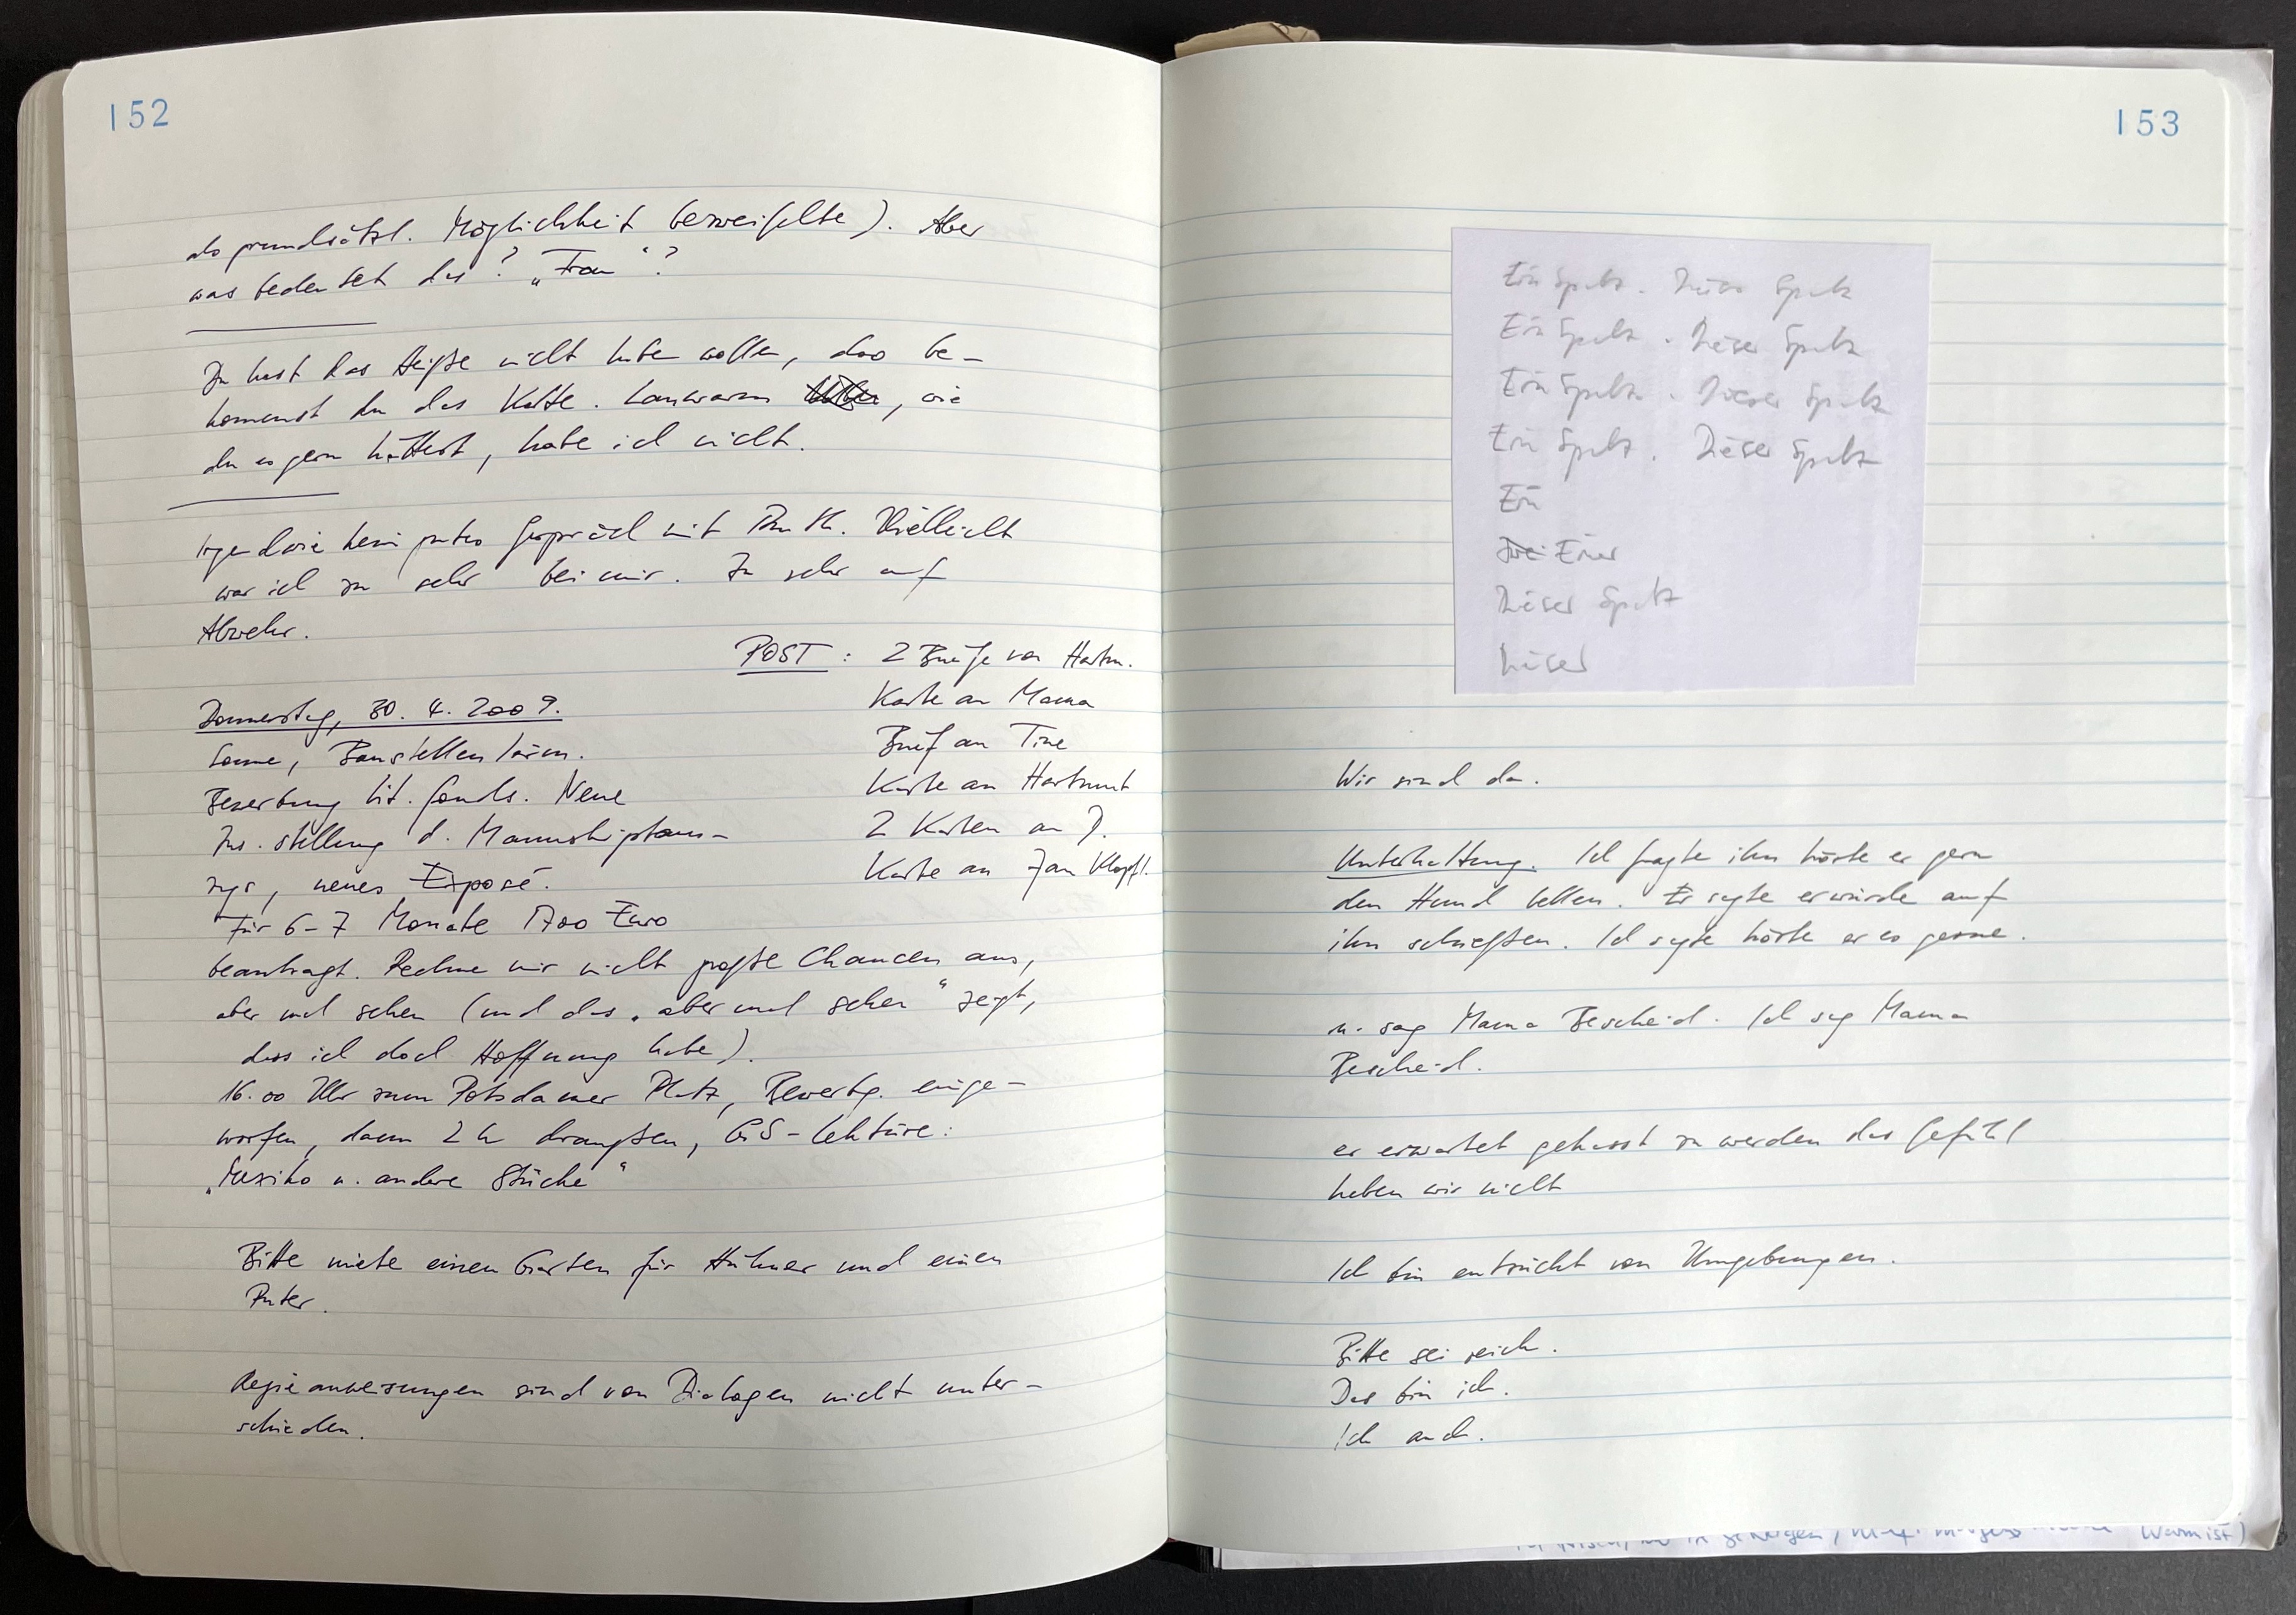 152
als grundsätzl. Möglichkeit bezweifelte). Aber
was bedeutet das? „Frau"?
Du hast das Heiße nicht haben wollen, also be-
kommst du das Kalte. Lauwarm, wie
du es gern hättest, habe ich nicht.
Irgendwie kein gutes Gespräch mit Ruth. Vielleicht
war ich zu sehr bei mir. Zu sehr auf
Abwehr.
POST: 2 Briefe von Hartm.
Karte an Mama
Brief an Tine
Karte an Hartmut
2 Karten an P.
Karte an Jan Klopfl.
Donnerstag, 30. 4. 2009.
Sonne, Baustellenlärm.
Bewerbung Lit. fonds. Neue
Zus. stellung d. Manuskriptaus-
zugs, neues Exposé.
Für 6-7 Monate 1700 Euro
beantragt. Rechne mir nicht große Chancen aus,
aber mal sehen (und das „aber mal sehen" zeigt,
dass ich doch Hoffnung habe).
16.00 Uhr zum Potsdamer Platz, Bewerbg. einge-
worfen, dann 2 h draußen, GS-Lektüre:
„Mexiko u. andere Stücke"
Bitte miete einen Garten für Hühner und einen
Puter.
Regieanweisungen sind von Dialogen nicht unter-
schieden.
153
Ein Spatz. Dieser Spatz
Ein Spatz. Dieser Spatz
Ein Spatz. Dieser Spatz
Ein Spatz. Dieser Spatz
Ein
Einer
Dieser Spatz
Dieser
Wir sind da.
Unterhaltung. Ich fragte ihn hörte er gern
den Hund bellen. Er sagte er würde auf
ihn schießen. Ich sagte hörte er es gerne.
u. sag Mama Bescheid. Ich sag Mama
Bescheid.
er erwartet gehasst zu werden das Gefühl
haben wir nicht
Ich bin entzückt von Umgebungen.
Bitte sei reich.
Das bin ich.
Ich auch.